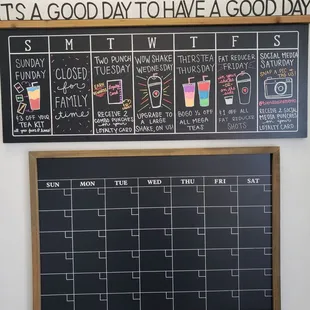 T'S A GOOD DAY TO HAVE A GOOD DAY
S M T W T F S
SUNDAY
FUNDAY
$3 OFF YOUR
TEA KIT
CLOSED
for
FAMILY
time
TWO PUNCH
TUESDAY
RECEIVE 2
COMBO PUNCHES
LOYALTY CARD
WOW SHAKE
WEDNESDAY
UPGRADE TO
A LARGE
SHAKE, ON US!
THIRSTEA
THURSDAY
BOGO ½ OFF
ALL MEGA
TEAS
FAT REDUCER
FRIDAY
$1 OFF ALL
FAT REDUCER
SHOTS
SOCIAL MEDIA
SATURDAY
SNAP A PIC
RECEIVE 2
SOCIAL MEDIA
PUNCHES
LOYALTY CARD
SUN MON TUE WED THU FRI SAT